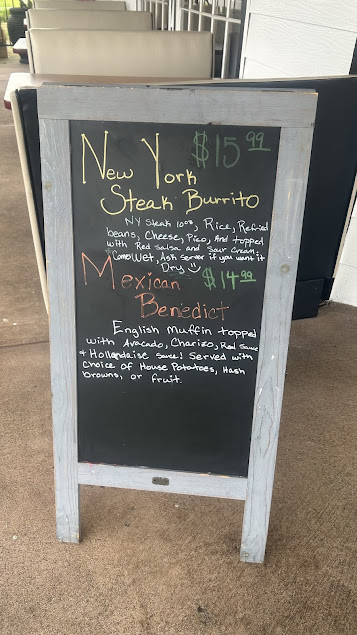 New York $15.99
Steak Burrito
NY Steak 10oz, Rice, Refried
beans, Cheese, Pico, And topped
with Red Salsa and Sour Cream,
*Comes Wet, Ask Server if you want it
Dry
Mexican $14.99
Benedict
English Muffin topped
with Avacado, Charizo, Red Sauce
+ Hollandaise Sauce! Served with
Choice of House Potatoes, Hash
browns, or fruit.